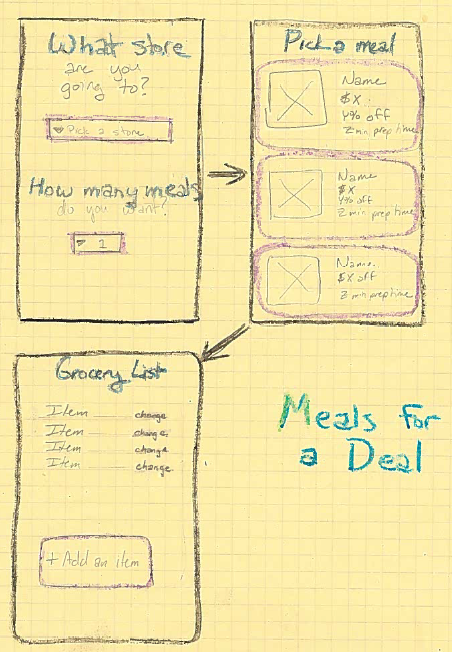 What store
are you
going to?
Pick a store
How many meals
do you want?
1
Pick a meal
Name
$X
Y% off
Z min prep time
Name
$X
Y% off
Z min prep time
Name
$X off
Z min prep time
Grocery List
Item change
Item change
Item change
Item change
+ Add an item
Meals for
a Deal